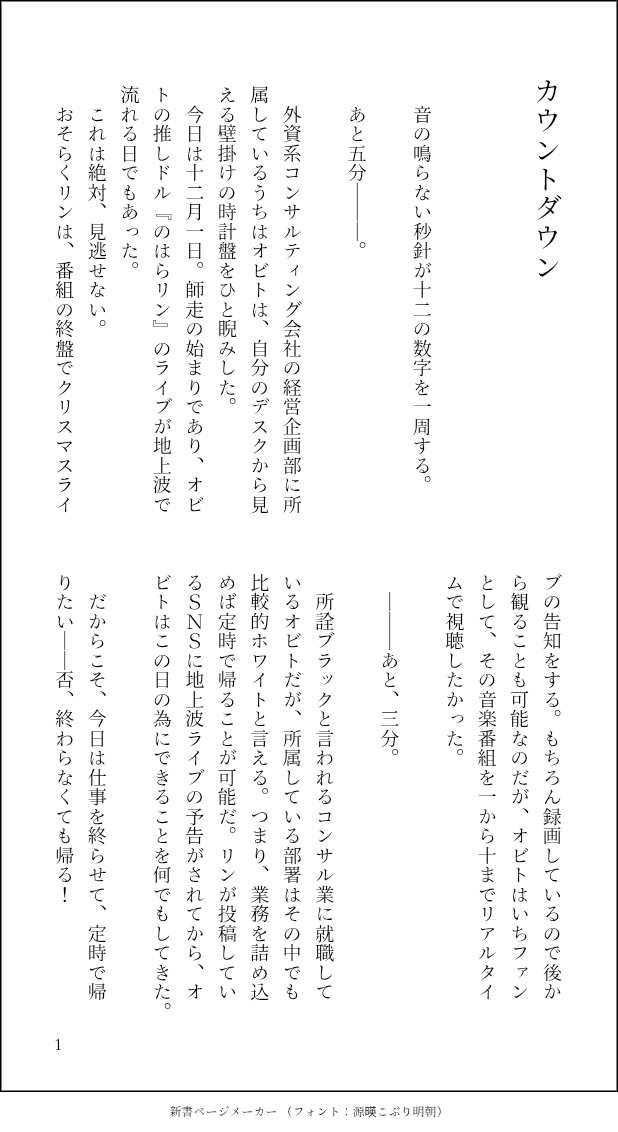 カウントダウン
音の鳴らない秒針が十二の数字を一周する。
あと五分―――。
外資系コンサルティング会社の経営企画部に所
属しているうちはオビトは、自分のデスクから見
える壁掛けの時計盤をひと睨みした。
今日は十二月一日。師走の始まりであり、オビ
トの推しドル『のはらリン』のライブが地上波で
流れる日でもあった。
これは絶対、見逃せない。
おそらくリンは、番組の終盤でクリスマスライ
ブの告知をする。もちろん録画しているので後か
ら観ることも可能なのだが、オビトはいちファン
として、その音楽番組を一から十までリアルタイ
ムで視聴したかった。
―――あと、三分。
所詮ブラックと言われるコンサル業に就職して
いるオビトだが、所属している部署はその中でも
比較的ホワイトと言える。つまり、業務を詰め込
めば定時で帰ることが可能だ。リンが投稿してい
るSNSに地上波ライブの予告がされてから、オ
ビトはこの日の為にできることを何でもしてきた。
だからこそ、今日は仕事を終らせて、定時で帰
りたい――否、終わらなくても帰る!
1
新書ページメーカー（フォント：源暎こぶり明朝）